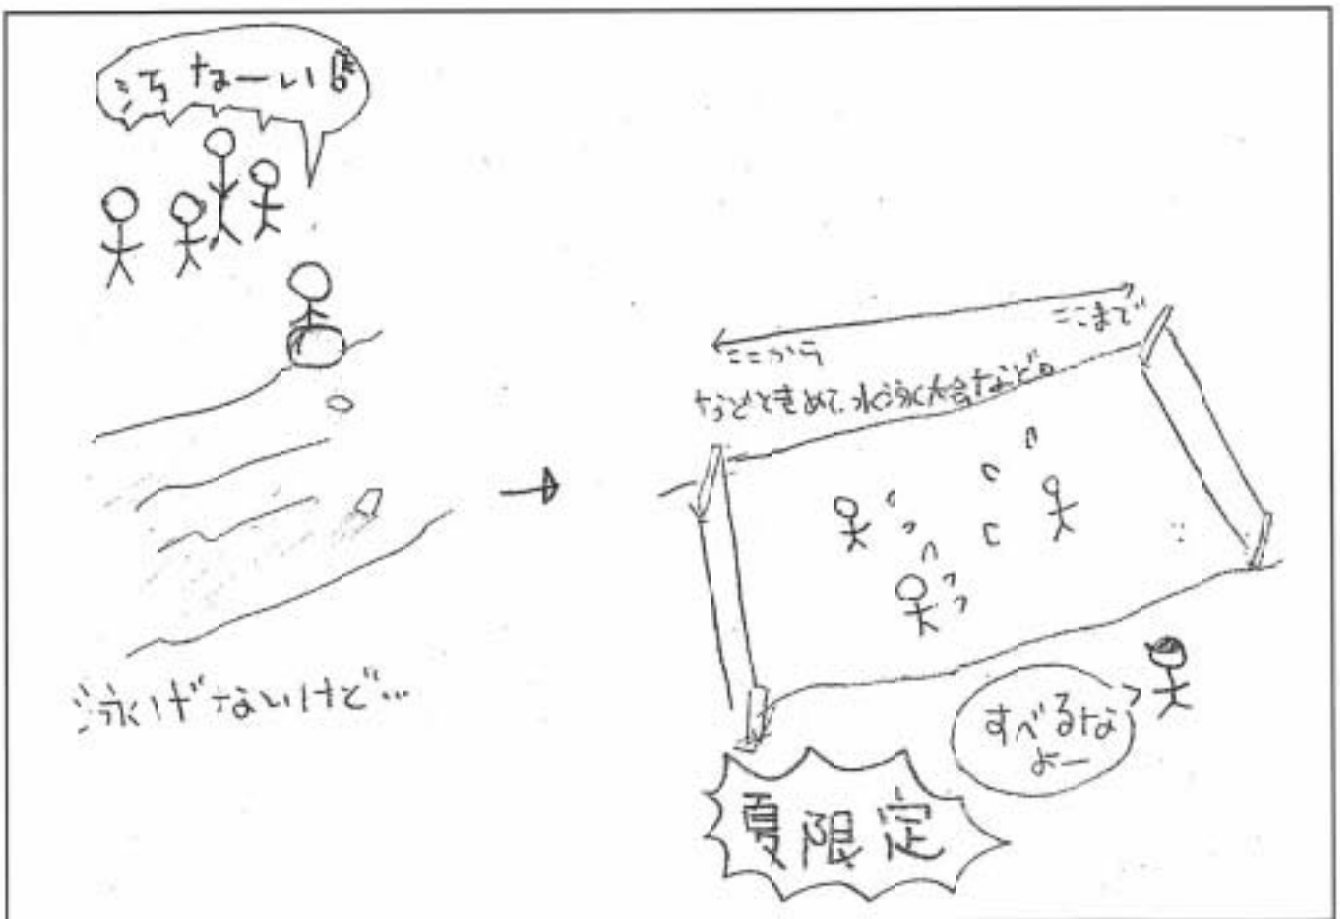 汚なーい
泳げないけど…
ここから
ここまで
などときめて、水泳大会など。
すべるな
よー
夏限定